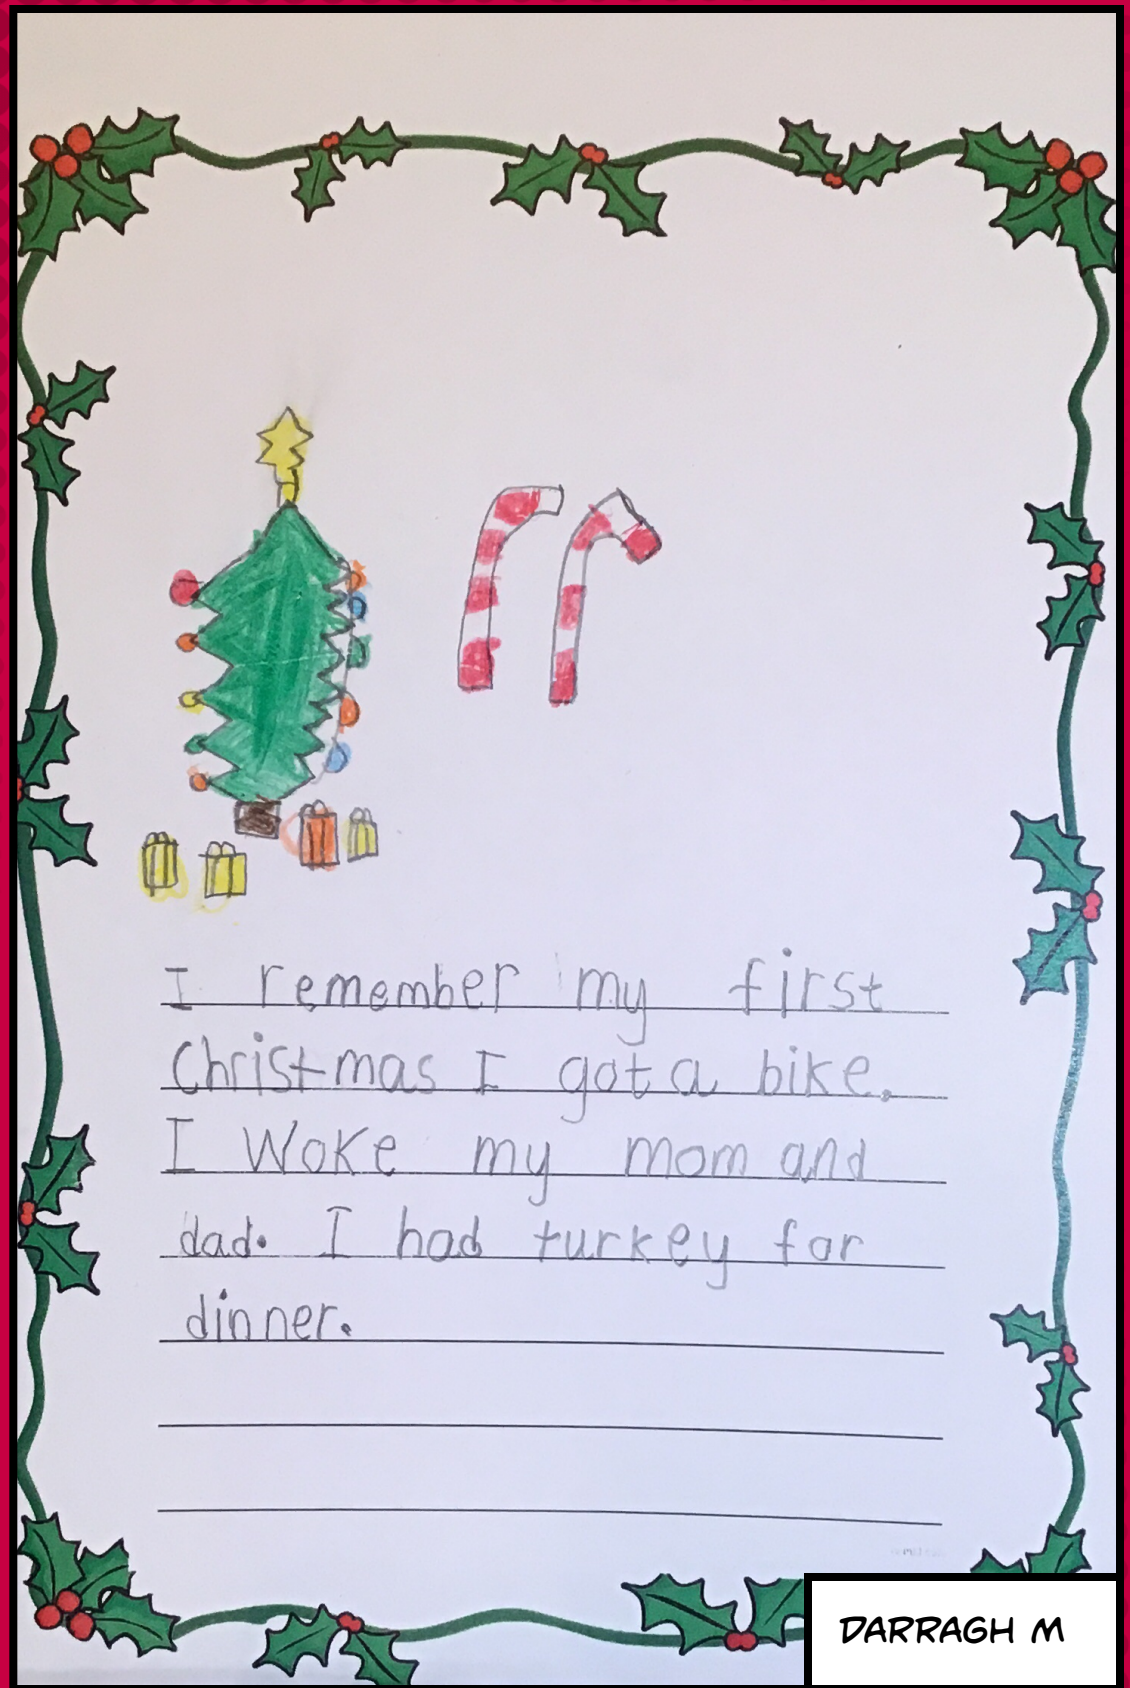 I remember my first
Christmas I got a bike.
I Woke my mom and
dad. I had turkey for
dinner.
DARRAGH M